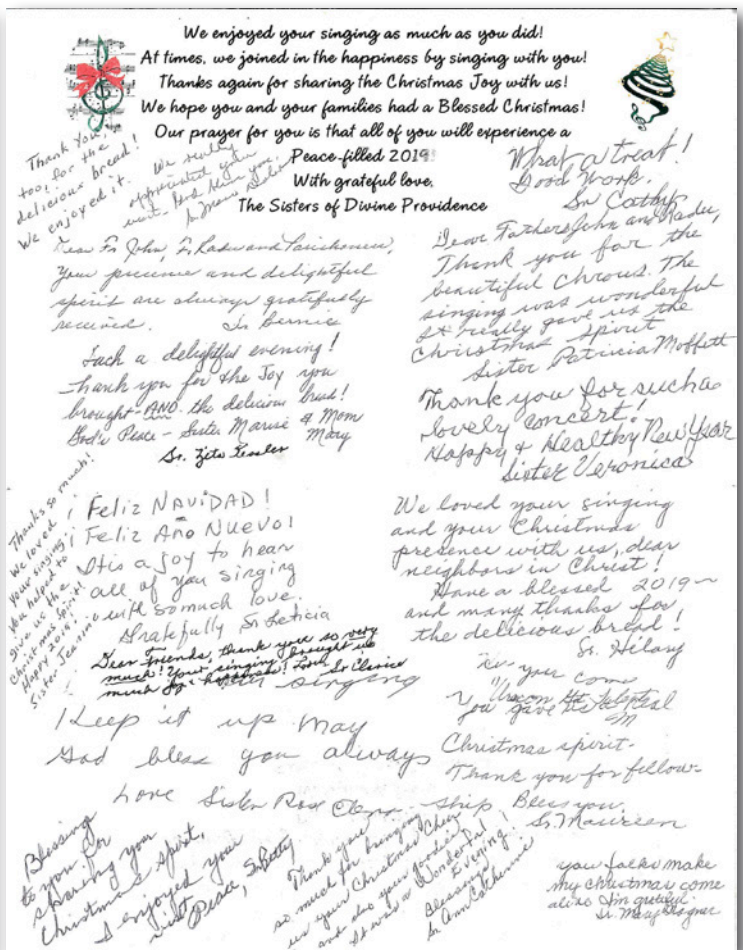 We enjoyed your singing as much as you did!
At times, we joined in the happiness by singing with you!
Thanks again for sharing the Christmas Joy with us!
We hope you and your families had a Blessed Christmas!
Our prayer for you is that all of you will experience a
Peace-filled 2019!
With grateful love,
The Sisters of Divine Providence
Thank You,
too, for the
delicious bread!
We enjoyed it.
We really
appreciated your
visit. God bless you.
Sr. Marie
What a treat!
Good Work.
Sr Cathy
Dear Fr John, Fr Radu and Parishoners,
Your presence and delightful
spirit are always gratefully
received. Sr Bernice
Dear Fathers John and Radu,
Thank you for the
beautiful Chrous. The
singing was wonderful
It really gave us the
Christmas Spirit
Sister Patricia Moffett
Such a delightful evening!
Thank you for the Joy you
brought-AND the delicious bread!
God's Peace - Sister Marise & Mom
Mary
Sr. Zita
Thank you for such a
lovely concert!
Happy & Healthy New Year
Sister Veronica
Thanks so much!
We loved
your singing.
You helped to
give us the
Christmas Spirit!
Happy 2019!
Sister Jeanne
¡ Feliz NAViDAD!
¡ Feliz Año Nuevo!
It is a joy to hear
all of you singing
with so much love.
Gratefully Sr Leticia
We loved your singing
and your Christmas
presence with us, dear
neighbors in Christ!
Have a blessed 2019~
and many thanks for
the delicious bread!
Sr. Hilary
Dear Friends, thank you so very
much! Your singing brought us
much joy & happiness! Love Sr Clarice
singing
Keep it up May
God bless you always
Love Sister Rose Clara
you come
You gave us a real
Christmas spirit.
Thank you for fellow-
ship Bless you.
Sr. Maureen
Blessing
to you for
sharing your
Christmas spirit,
I enjoyed your
visit
Peace, Sr Betty
Thank you
so much for bringing
us your Christmas Cheer
and also your goodies
It was a Wonderful
Evening!
Blessings
Sr Ann Catherine
you folks make
my Christmas come
alive I'm grateful
Sr. Mary